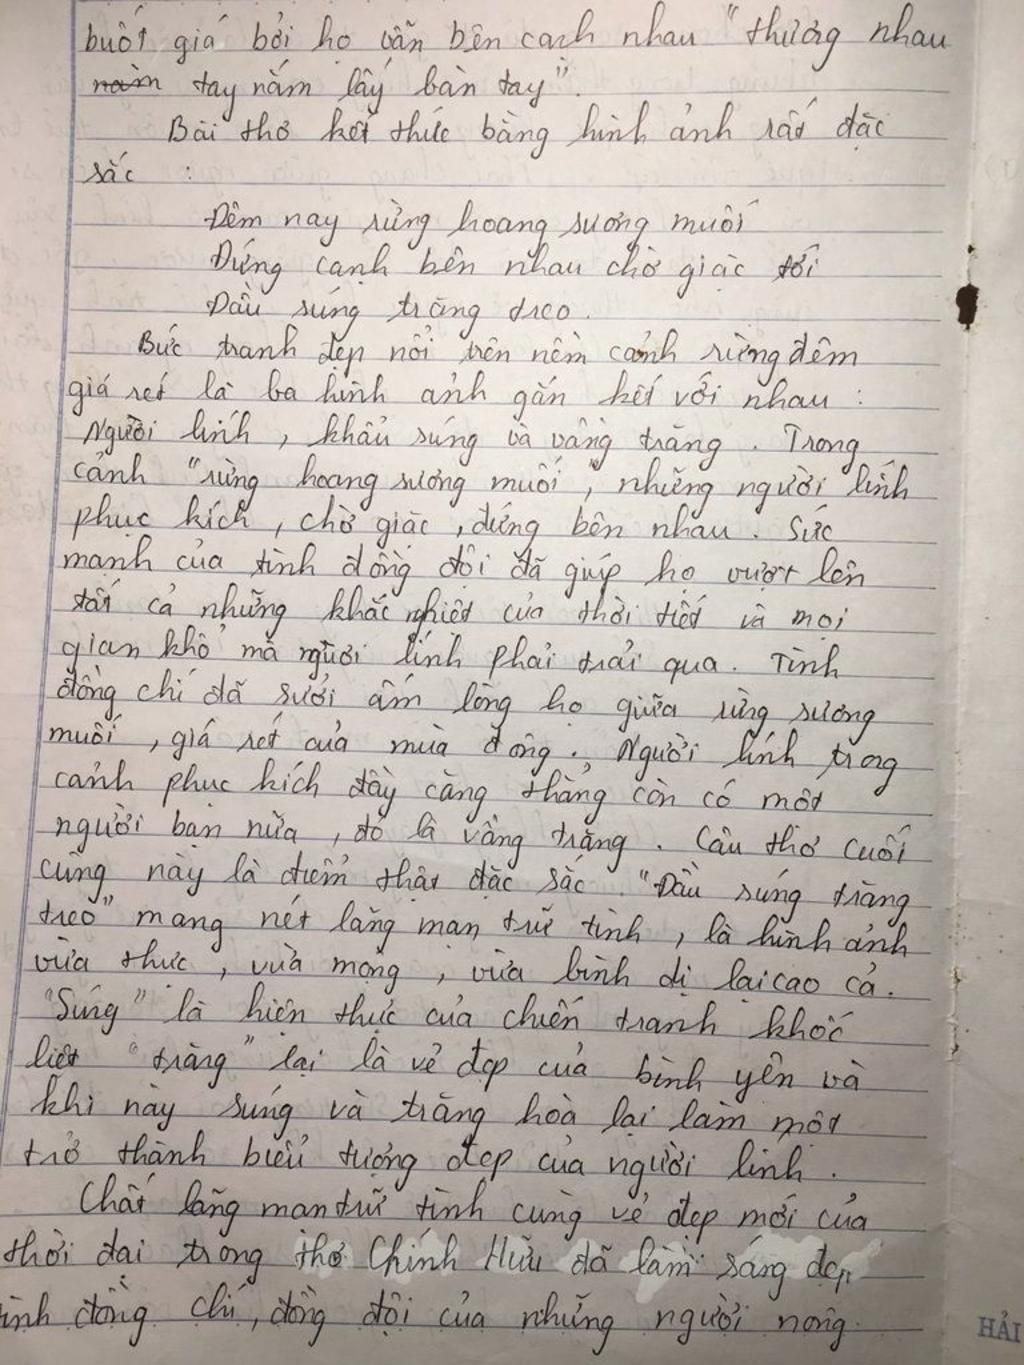 buốt giá bởi họ vẫn bên cạnh nhau "thương nhau
nằm tay nắm lấy bàn tay".
Bài thơ kết thúc bằng hình ảnh rất đặc
sắc :
Đêm nay rừng hoang sương muối
Đứng cạnh bên nhau chờ giặc tới
Đầu súng trăng treo.
Bức tranh đẹp nổi trên nềm cảnh rừng đêm
giá rét là ba hình ảnh gắn kết với nhau :
Người lính, khẩu súng và vầng trăng. Trong
cảnh "rừng hoang sương muối", những người lính
phục kích, chờ giặc, đứng bên nhau. Sức
mạnh của tình đồng đội đã giúp họ vượt lên
tất cả những khắc nghiệt của thời tiết và mọi
gian khổ mà người lính phải trải qua. Tình
đồng chí đã sưởi ấm lòng họ giữa rừng sương
muối, giá rét của mùa đông. Người lính trong
cảnh phục kích đầy căng thẳng còn có một
người bạn nữa, đó là vầng trăng. Câu thơ cuối
cùng này là điểm thật đặc sắc. "Đầu súng trăng
treo" mang nét lãng mạn trữ tình, là hình ảnh
vừa thực, vừa mộng, vừa bình dị lại cao cả.
"Súng" là hiện thực của chiến tranh khốc
liệt "trăng" lại là vẻ đẹp của bình yên và
khi này súng và trăng hoà lại làm một
trở thành biểu tượng đẹp của người lính.
Chất lãng mạn trữ tình cùng vẻ đẹp mới của
thời đại trong thơ Chính Hữu đã làm sáng đẹp
tình đồng chí, đồng đội của những người nông
HẢI